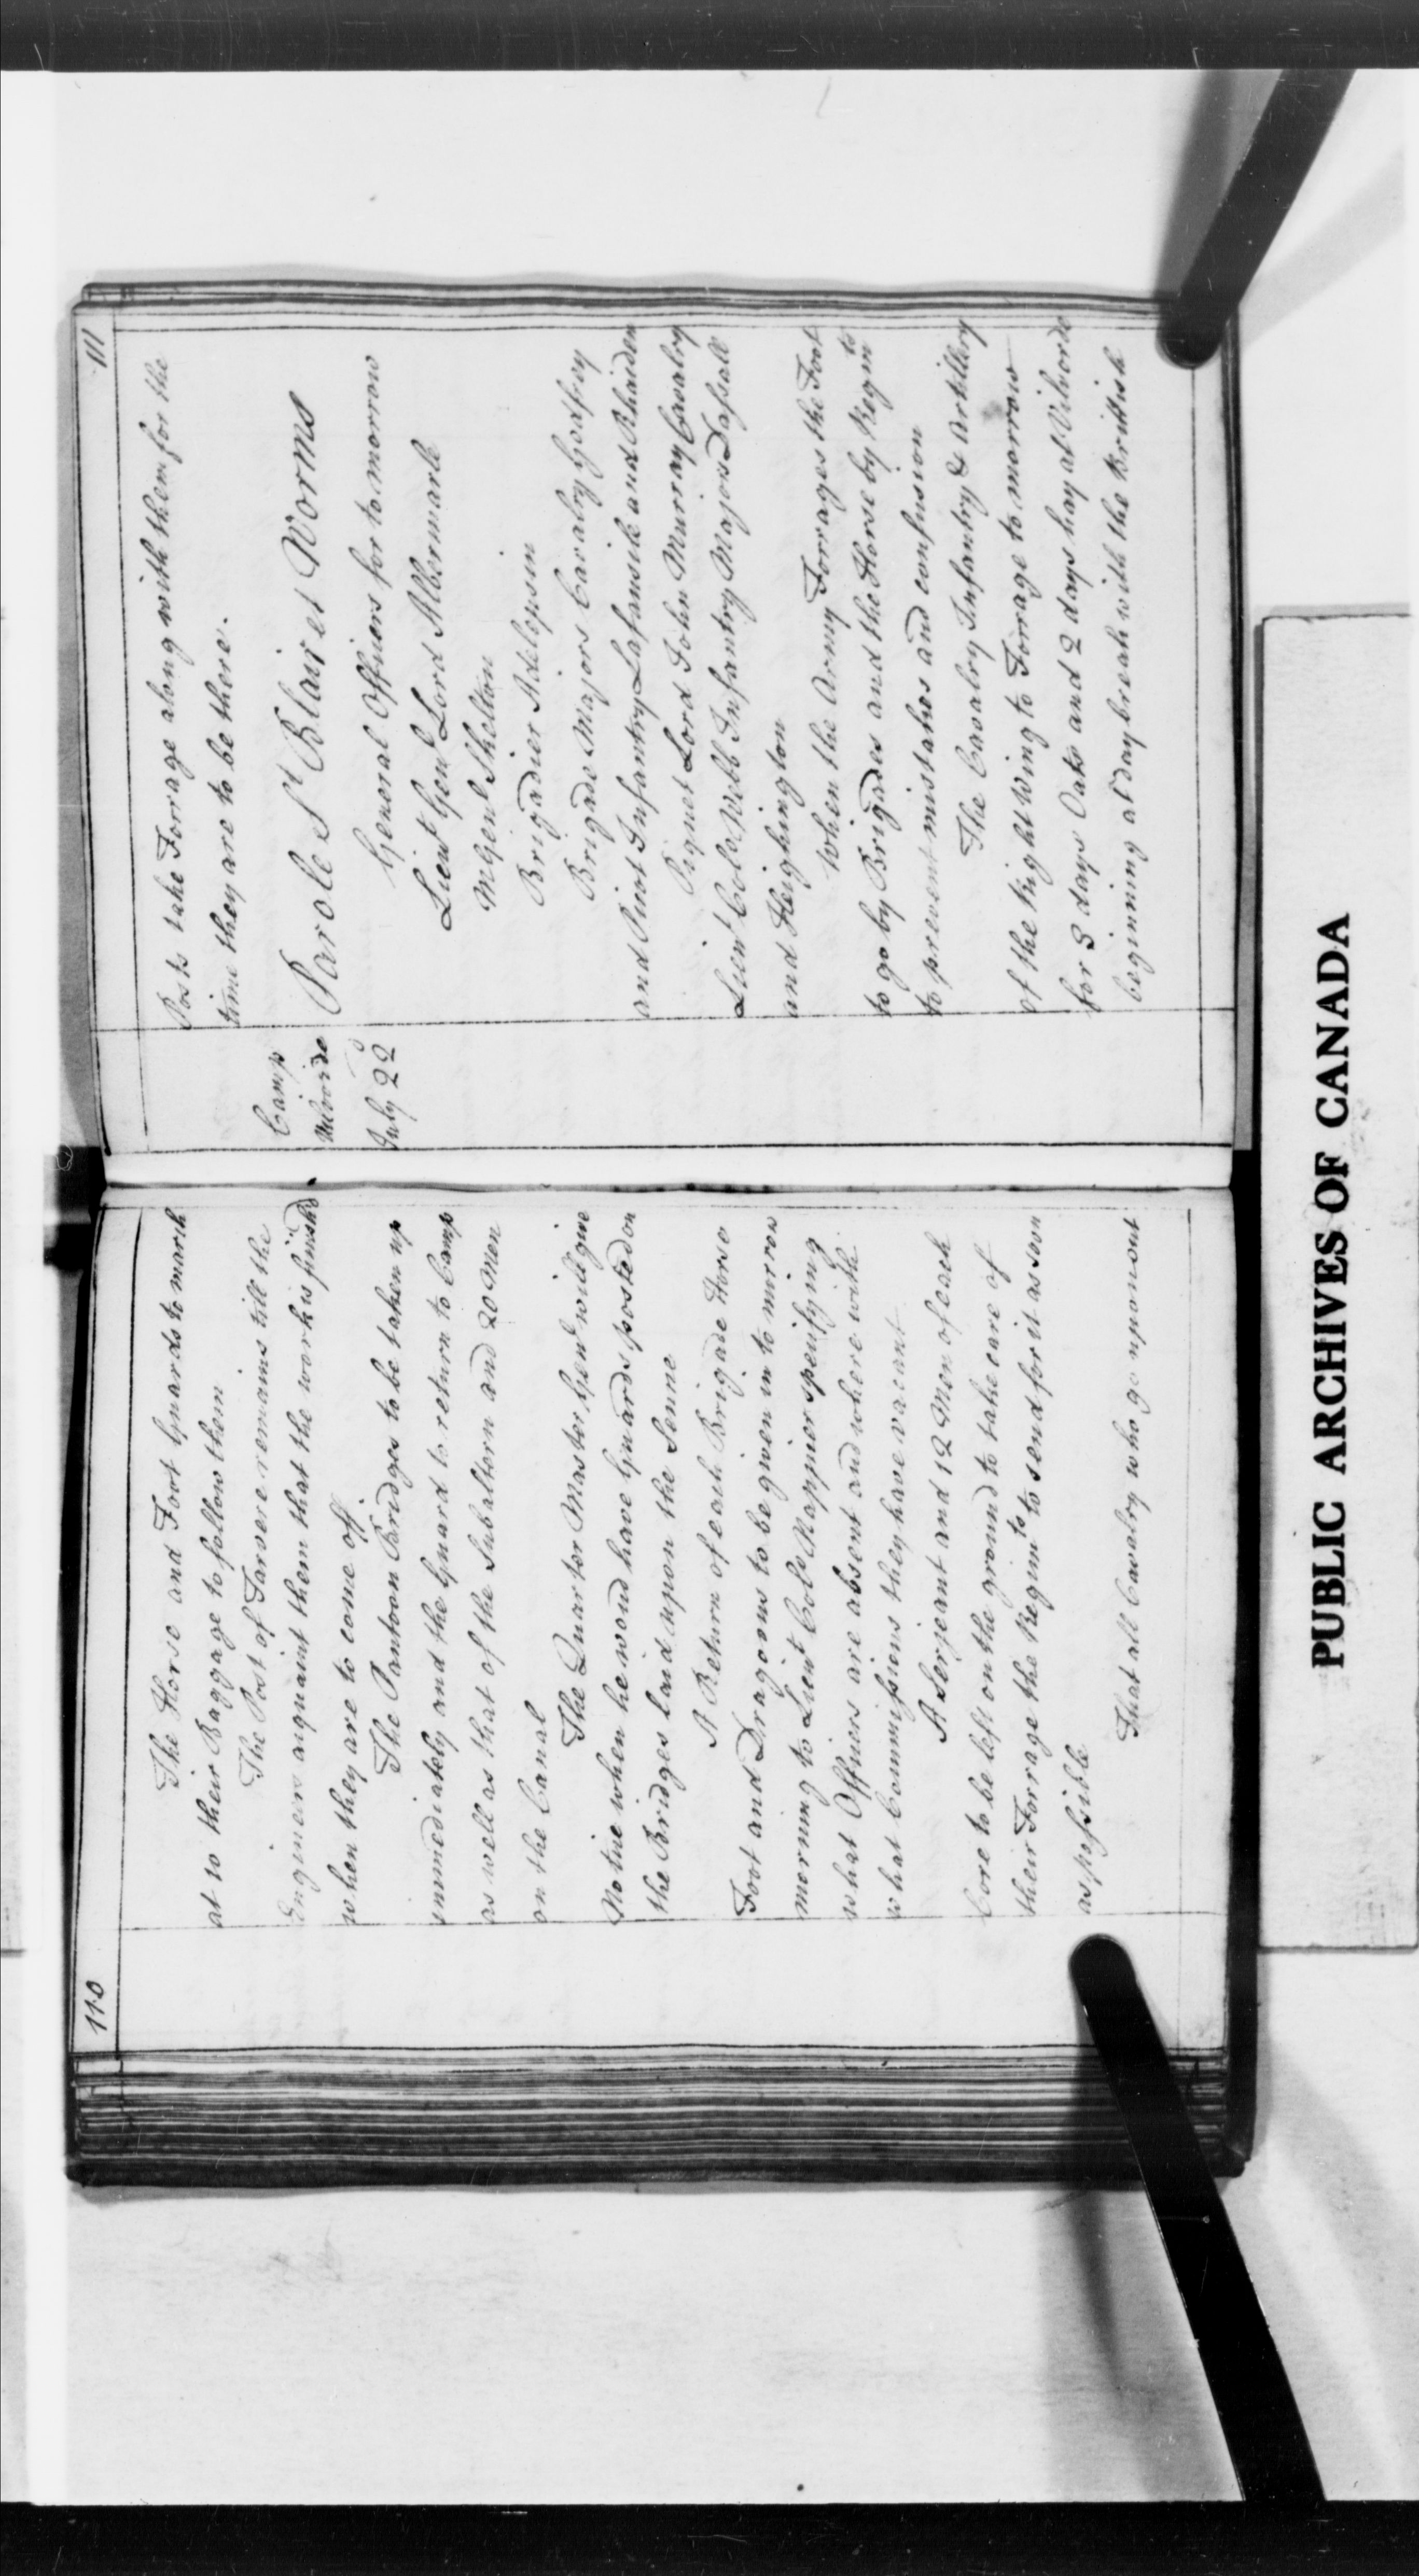 110
The Horse and Foot Guards to march
at 10 their Baggage to follow them
The Post of Tarvere remains till the
Engineers acquaint them that the work is finish'd
when they are to come off.
The Pantoon Bridges to be taken up
immediately and the Guard to return to Camp
as well as that of the Subaltern and 20 Men
on the Canal
The Quarter Master Genl will give
Notice when he woud have Guards posted on
the Bridges laid upon the Senne
A Return of each Brigade Horse
Foot and Dragoons to be given in to morrow
morning to Lieut Colo Nappier specifying
what Officers are absent and where with
what Commissions they have vacant
A Serjeant and 12 Men of each
Core to be left on the ground to take care of
their Forrage the Regimts to send for it as soon
as possible
That all Cavalry who go upon out
111
Posts take Forrage along with them for the
time they are to be there.
Camp
Vilvorde
July 22d
Parole St Blaire Worms
General Officers for to morrow
Lieut Genl Lord Albermarle
M Genl Skelton
Brigadier
Brigade Majors Cavalry Godfrey
and Pirot Infantry and
Piquet Lord John Murray Cavalry
Lieut Colo Webb Infantry Majors
and Heighington
When the Army Forrages the Foot
to go by Brigades and the Horse by Regimts
to prevent mistakes and confusion
The Cavalry Infantry & Artillery
of the Right Wing to Forrage to morrow
for 3 days Oats and 2 days hay at Vilvorde
beginning at day break with the Brittish
PUBLIC ARCHIVES OF CANADA